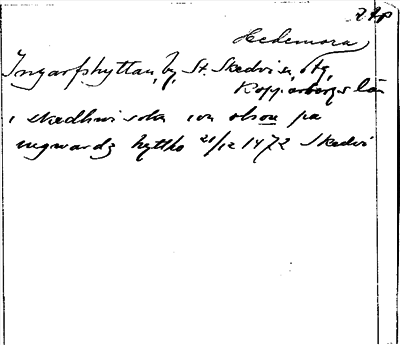 Hedemora
Ingarfshyttan, by, St. Skedvi sn,
Kopparbergs län
i skedhwi sokn ion olson pa
ingwardz hytto 21/12 1472 Skedvi